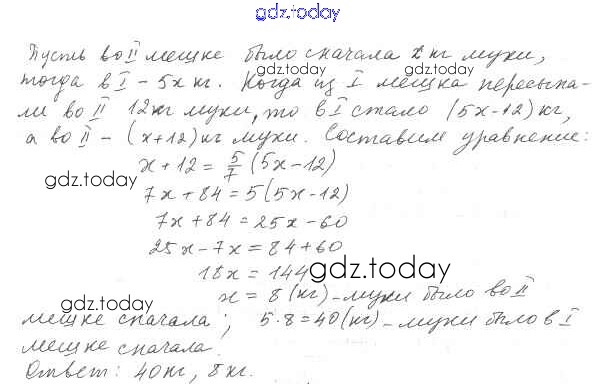 gdz.today
Пусть во II мешке было сначала x кг муки,
gdz.today gdz.today
тогда в I – 5x кг. Когда из I мешка пересыпа-
ли во II 12кг муки, то в I стало (5x-12) кг,
а во II – (x+12) кг муки. Составим уравнение:
x + 12 = 5/7 (5x - 12)
gdz.today gdz.today
7x + 84 = 5(5x - 12)
7x + 84 = 25x - 60
25x - 7x = 84 + 60
18x = 144
gdz.today
x = 8 (кг) – муки было во II
gdz.today
мешке сначала; 5·8 = 40 (кг) – муки было в I
мешке сначала.
gdz.today
Ответ: 40кг, 8кг.
gdz.today